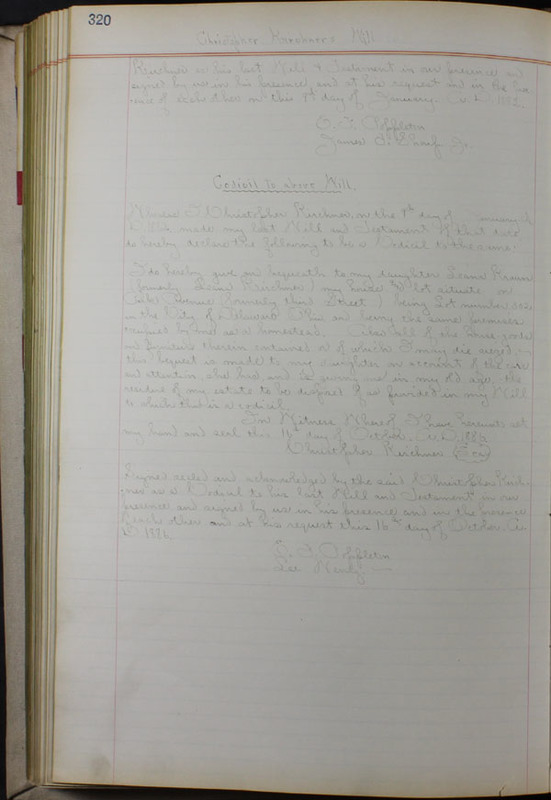 320
Christopher Kirchner's Will
Kirchner as his last Will & Testament in our presence and
signed by us in his presence and at his request and in the pres-
ence of each other on this 8th day of January. A.D. 188
Appleton
James
Codicil to above Will.
Whereas I Christopher Kirchner, on the day of January A.
D. made my last Will and Testament of that date
do hereby declare the following to be a Codicil to the same.
I do hereby give and bequeath to my daughter
(formerly Kirchner) my house & lot situate on
Avenue (formerly third Street) being Lot number
in the City of Delaware Ohio and being the same premises
occupied by me as a homestead. Also all of the house goods
and furniture therein contained or of which I may die seized.
this bequest is made to my daughter on account of the care
and attention she has and is giving me in my old age, the
residue of my estate to be disposed of as provided in my Will
to which this is a codicil
In Witness Whereof I have hereunto set
my hand and seal this 16 day of October. A.D. 1886
Christopher Kirchner (Seal)
Signed sealed and acknowledged by the said Christopher Kirch-
ner as a Codicil to his last Will and Testament, in our
presence and signed by us in his presence and in the presence
of each other and at his request this 16th day of October. A.
D. 1886
Appleton